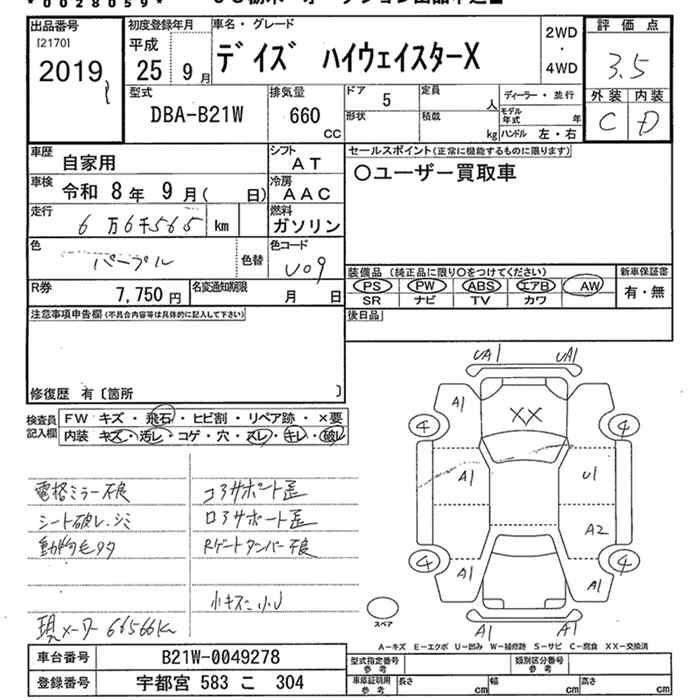 *0028059*
出品番号 初度登録年月 車名・グレード 2WD ・ 4WD 評価点
[2170] 2019 平成 25 9月 デイズ ハイウェイスターX 3.5
外装 内装 C D
型式 DBA-B21W 排気量 660 CC ドア 5 定員 人 ディーラー・並行
形状 積載 kg モデル年式 年 ハンドル 左・右
車歴 自家用 シフト AT セールスポイント(正常に機能するものに限ります)
車検 令和 8年 9月( 日) 冷房 AAC 〇ユーザー買取車
走行 6万6千565 km 燃料 ガソリン
色 パープル 色替 色コード U09
装備品(純正品に限り〇をつけてください) 新車保証書
PS PW ABS エアB AW 有・無
SR ナビ TV カワ
R券 7,750円 名変通知期限 月 日
注意事項申告欄(不具合内容等は具体的に記入して下さい) 後日品
修復歴 有〔箇所 〕
検査員記入欄 FW キズ・飛石・ヒビ割・リペア跡・×要
内装 キズ・汚レ・コゲ・穴・スレ・キレ・破レ
UA1 UA1
A1 XX
4 4
A1 U1
A2
4 4
A1 A1
A1 A1
スペア
電格ミラー不良 コアサポート歪
シート破レ、シミ ロアサポート歪
Rゲートダンパー不良
小キズ小U
現メーター 66566km
A-キズ E-エクボ U-凹み W-補修跡 S-サビ C-腐食 XX-交換済
車台番号 B21W-0049278 型式指定番号 参考 類別区分番号 参考
登録番号 宇都宮 583 こ 304 車庫証明用 参考 長さ cm 幅 cm 高さ cm